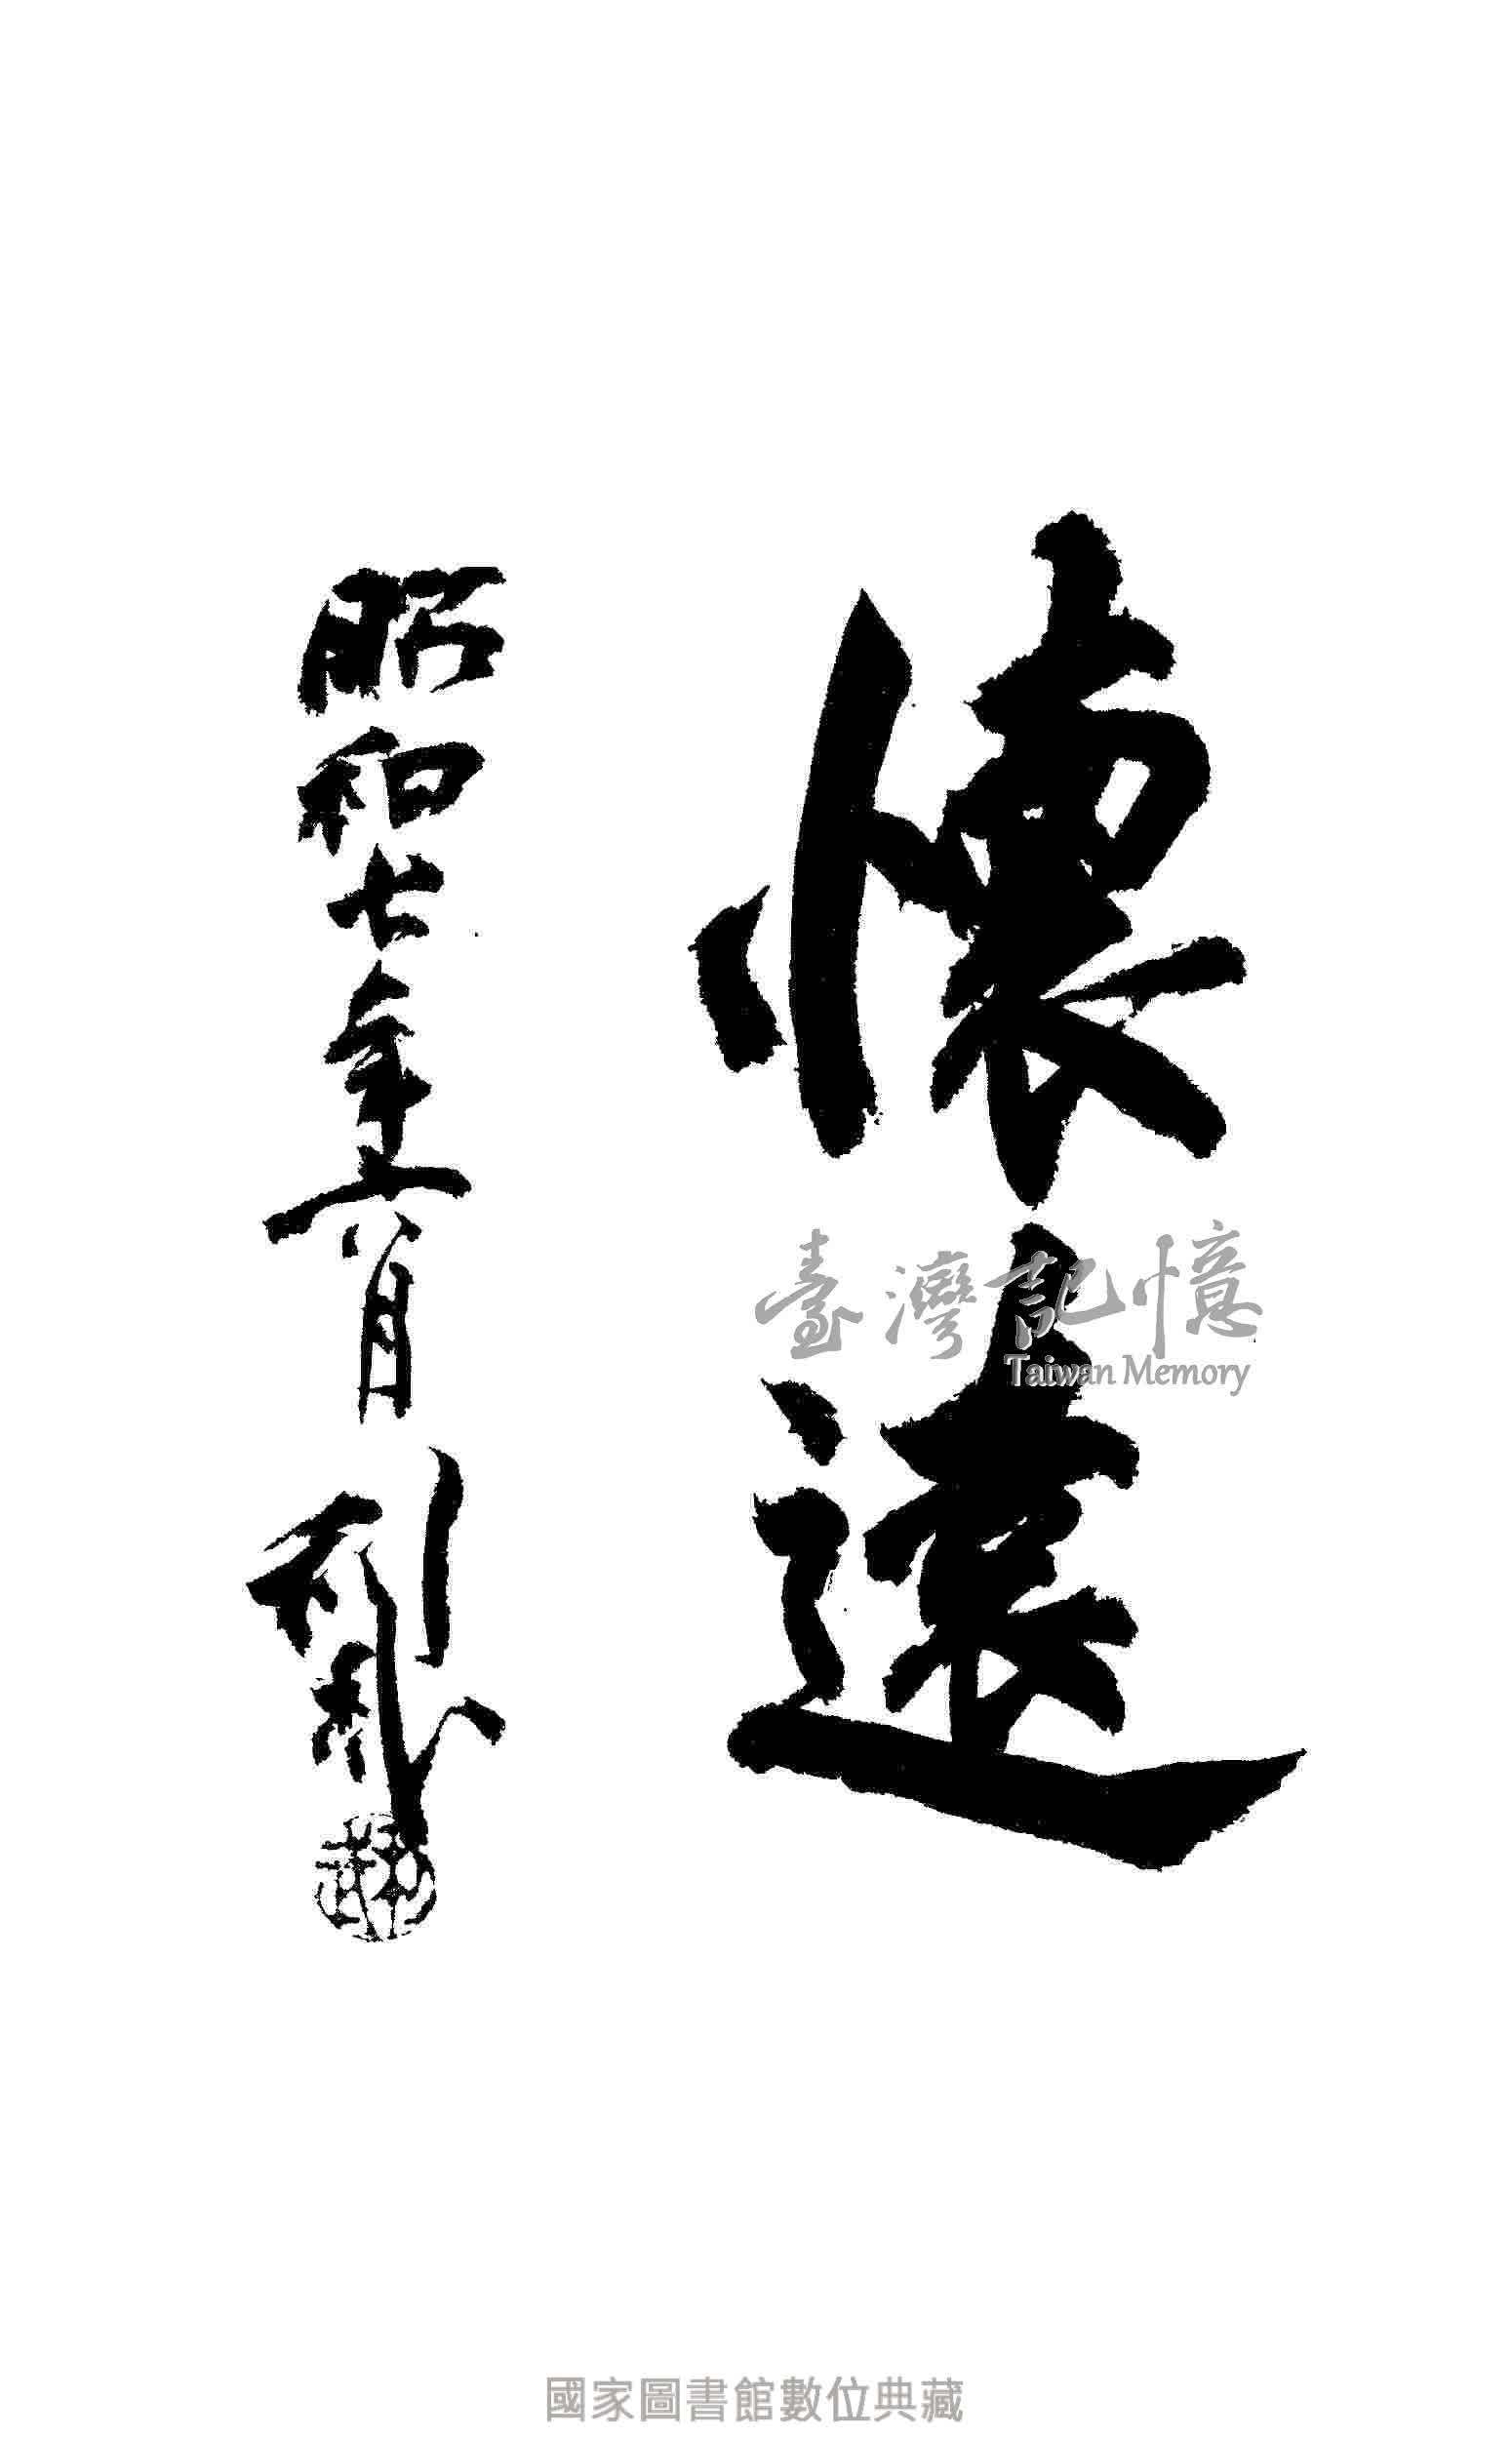 懷遠
昭和七年六月
臺灣記憶
Taiwan Memory
國家圖書館數位典藏